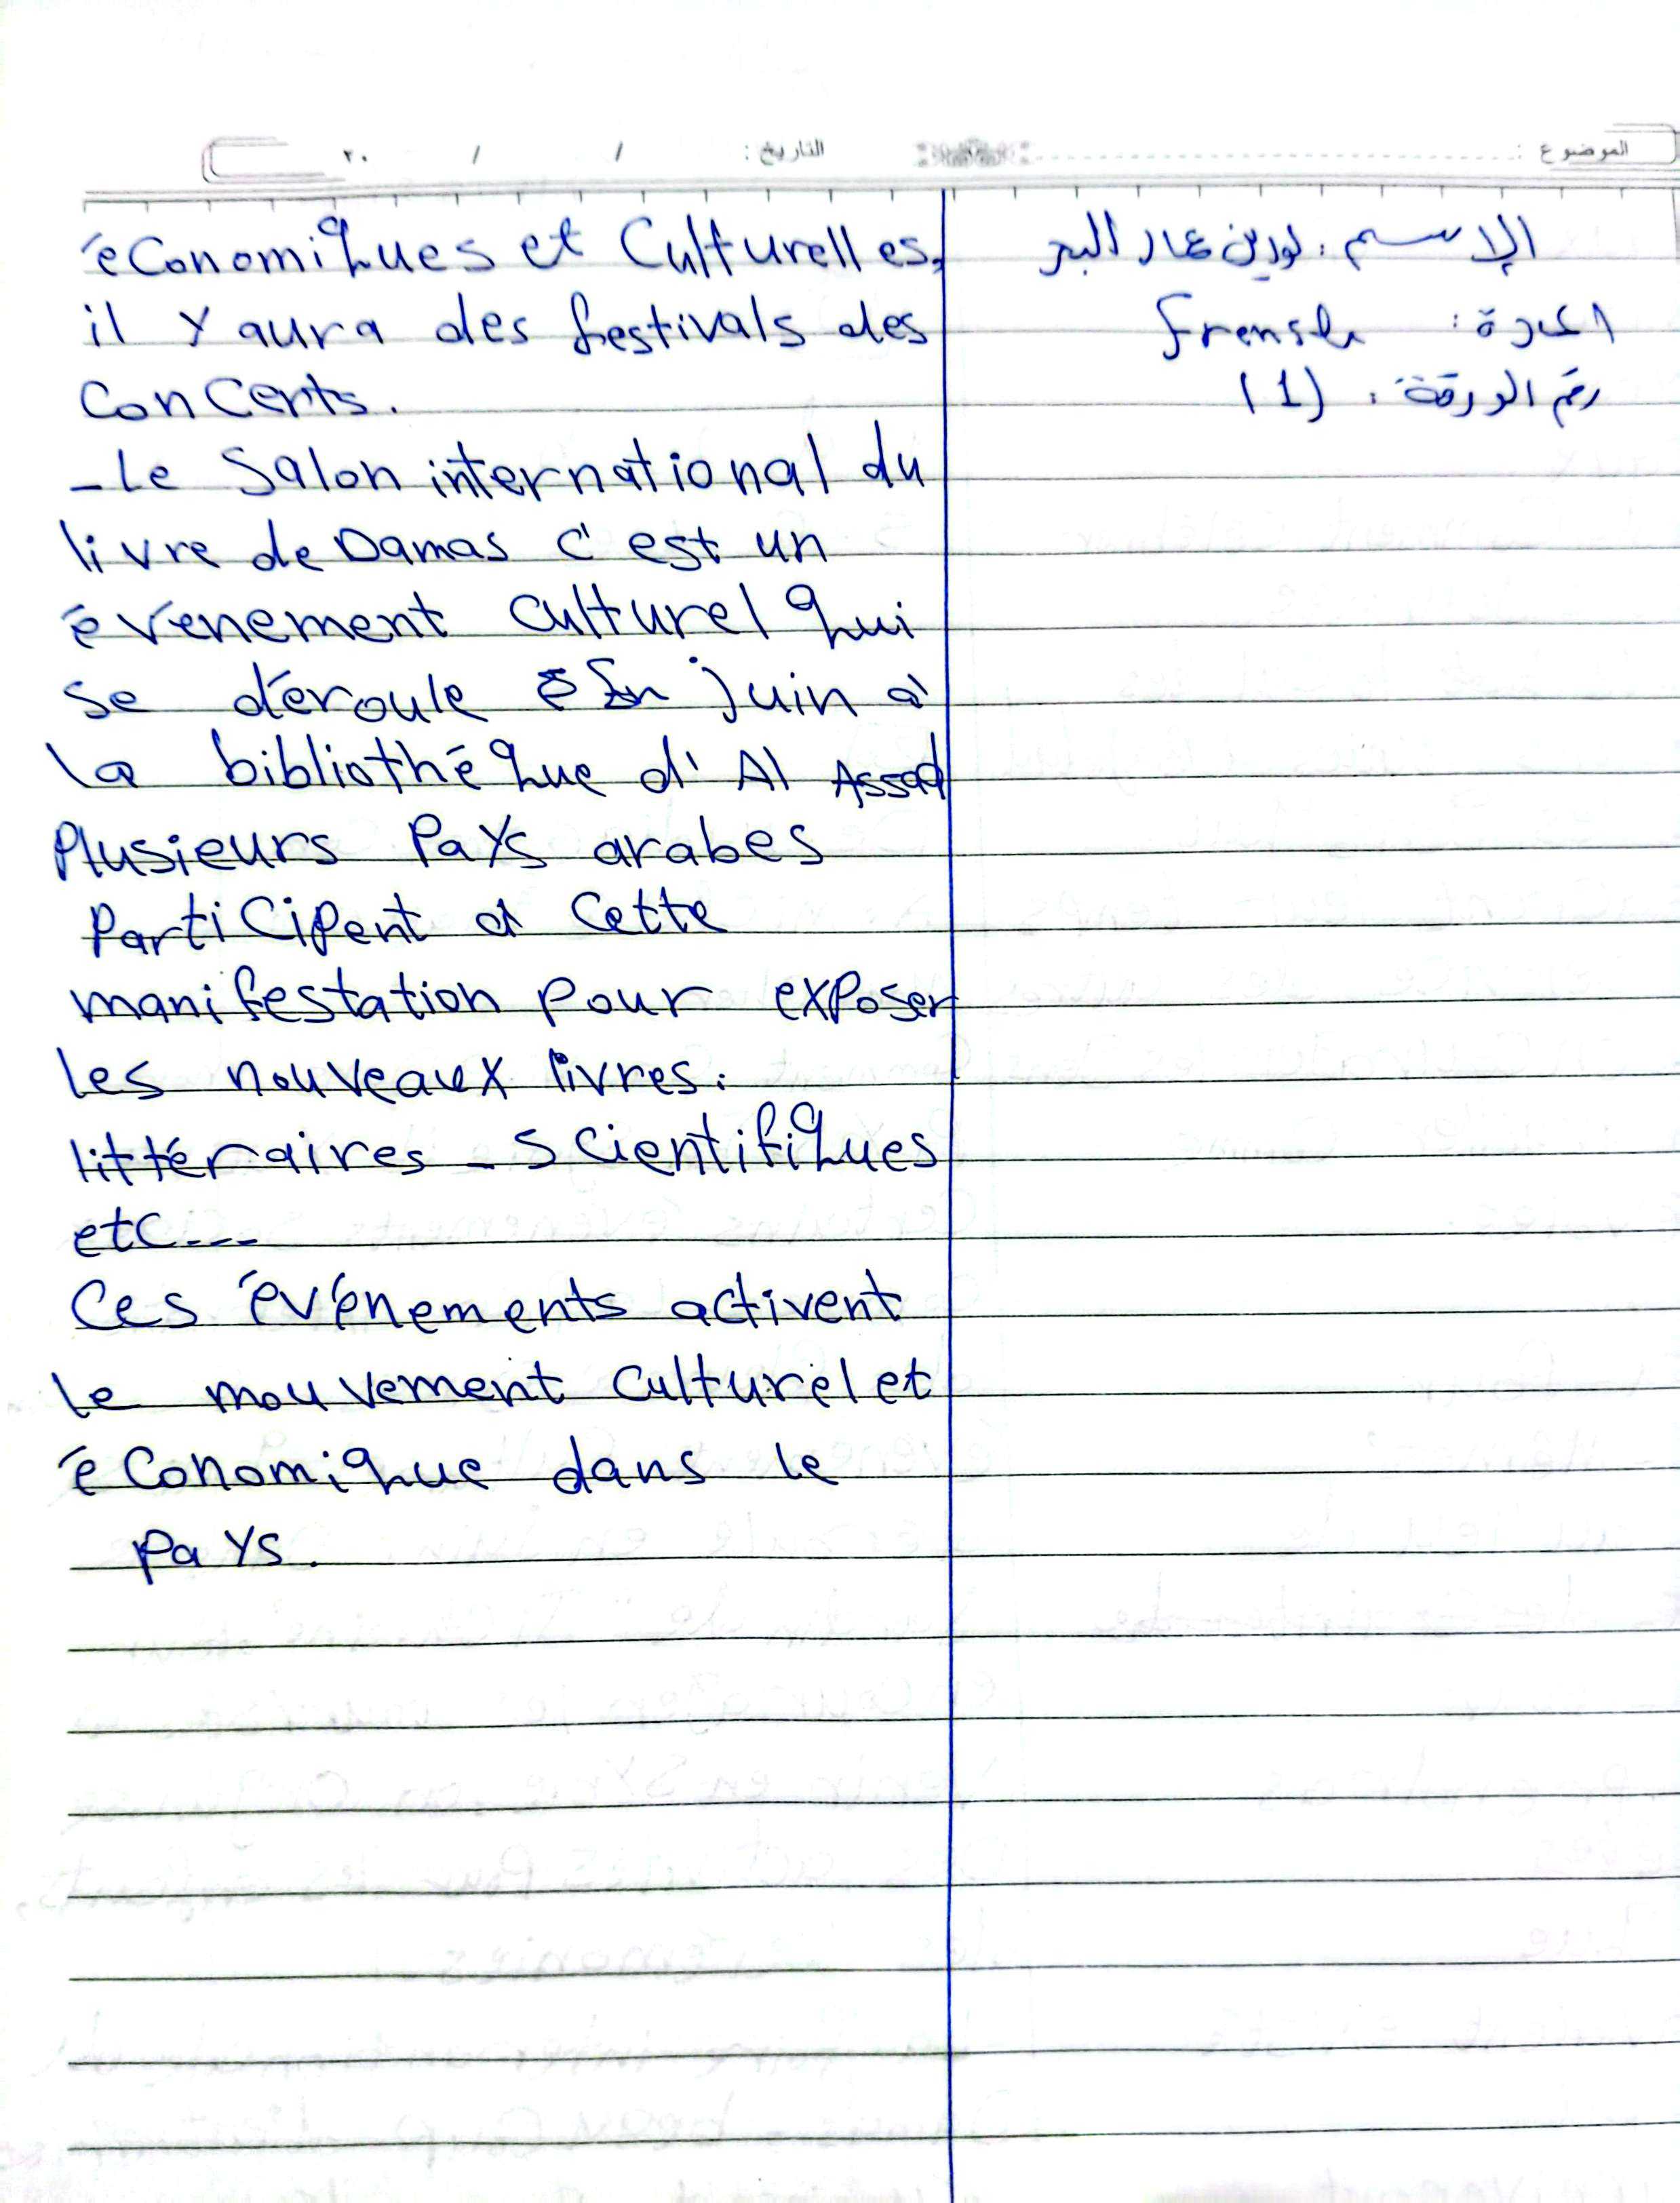 الموضوع :
التاريخ : / / ٢٠
الإسم : لورين عمار البحر
المادة : Frensh
رقم الورقة : (1)
économiques et Culturelles,
il y aura des festivals des
Concerts.
- Le Salon international du
livre de Damas c'est un
évenement culturel qui
se déroule En juin à
la bibliothéque d'Al Assad
Plusieurs Pays arabes
Participent à Cette
manifestation pour exposer
les nouveaux livres :
littéraires - scientifiques
etc---
Ces événements activent
le mouvement Culturel et
économique dans le
pays.